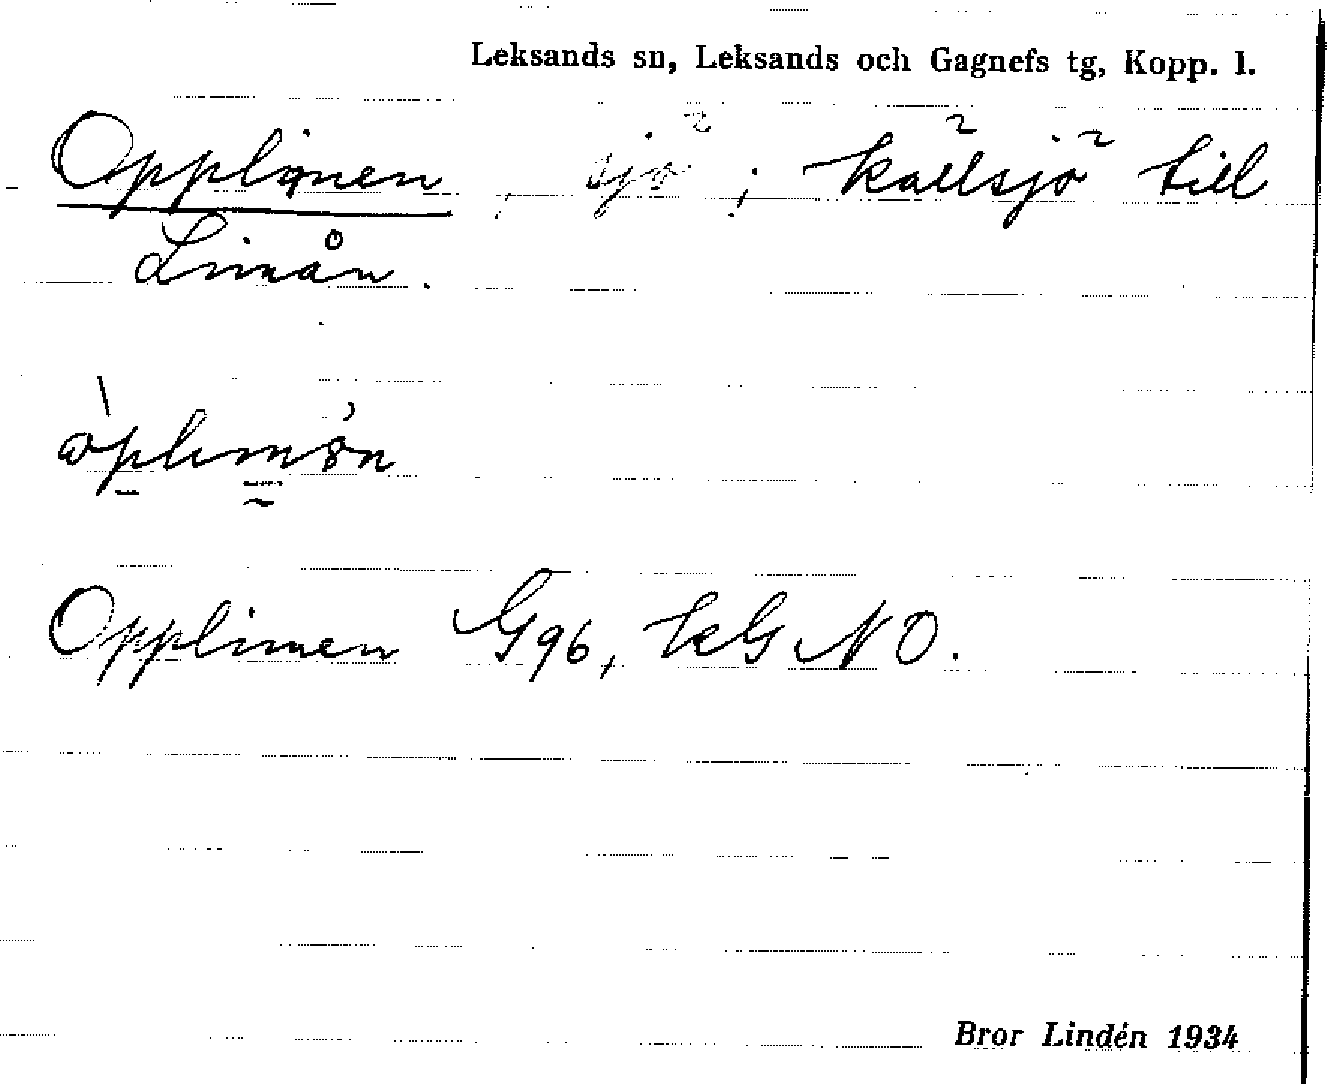 Leksands sn, Leksands och Gagnefs tg, Kopp. l.
Opplimen, sjö; källsjö till
Limån.
Opplimen G96, kG NO.
Bror Lindén 1934